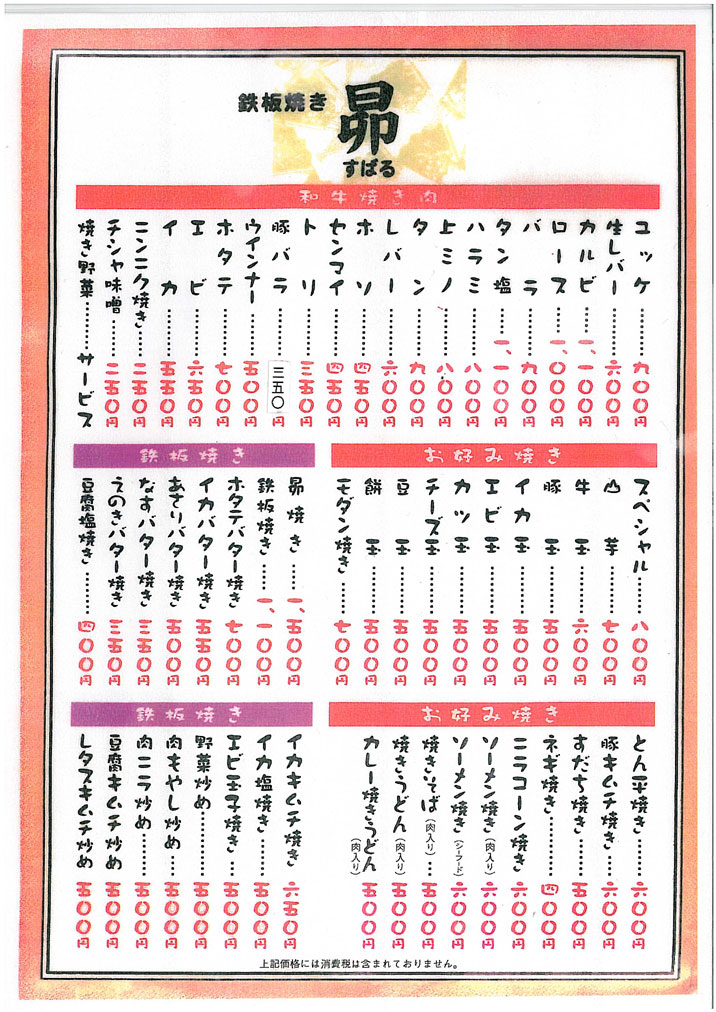 鉄板焼き
昴
すばる
和牛焼き肉
ユッケ………九〇〇円
生レバー………六〇〇円
カルビ……一、一〇〇円
ロース……一、〇〇〇円
バラ………九〇〇円
タン塩……一、一〇〇円
ハラミ………八〇〇円
上ミノ………八〇〇円
タン………九〇〇円
レバー………六〇〇円
ホソ………四五〇円
センマイ………四五〇円
トリ………三五〇円
豚バラ………三五〇円
ウインナー………五〇〇円
ホタテ………七〇〇円
エビ………六五〇円
イカ………五五〇円
ニンニク焼き……二五〇円
チシャ味噌……二五〇円
焼き野菜………サービス
お好み焼き
スペシャル……八〇〇円
山芋………七〇〇円
牛玉………六〇〇円
豚玉………五〇〇円
イカ玉………五〇〇円
エビ玉………五〇〇円
カツ玉………五〇〇円
チーズ玉………五〇〇円
豆玉………五〇〇円
餅玉………五〇〇円
モダン焼き……七〇〇円
鉄板焼き
昴焼き……一、五〇〇円
鉄板焼き……一、一〇〇円
ホタテバター焼き 七〇〇円
イカバター焼き 五五〇円
あさりバター焼き 五〇〇円
なすバター焼き 三五〇円
えのきバター焼き 三五〇円
豆腐塩焼き……四〇〇円
お好み焼き
とん平焼き……六〇〇円
豚キムチ焼き…六〇〇円
すだち焼き……五〇〇円
ネギ焼き………四〇〇円
ニラコーン焼き 六〇〇円
ソーメン焼き(肉入り) 六〇〇円
ソーメン焼き(シーフード) 六〇〇円
焼きそば(肉入り)…五〇〇円
焼きうどん(肉入り) 五〇〇円
カレー焼きうどん(肉入り) 五〇〇円
鉄板焼き
イカキムチ焼き 六五〇円
イカ塩焼き……五〇〇円
エビ玉子焼き…五〇〇円
野菜炒め………五〇〇円
肉もやし炒め…五〇〇円
肉ニラ炒め……五〇〇円
豆腐キムチ炒め 五〇〇円
レタスキムチ炒め 五〇〇円
上記価格には消費税は含まれておりません。